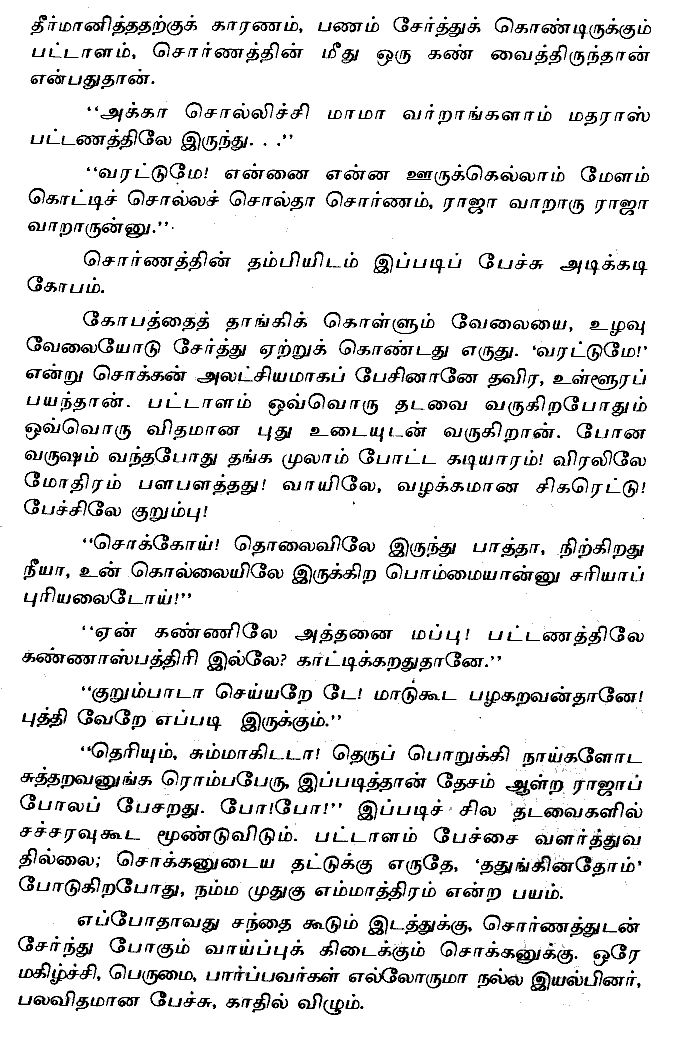 தீர்மானித்ததற்குக் காரணம், பணம் சேர்த்துக் கொண்டிருக்கும்
பட்டாளம், சொர்ணத்தின் மீது ஒரு கண் வைத்திருந்தான்
என்பதுதான்.
“அக்கா சொல்லிச்சி மாமா வர்றாங்களாம் மதராஸ்
பட்டணத்திலே இருந்து. . .”
“வரட்டுமே! என்னை என்ன ஊருக்கெல்லாம் மேளம்
கொட்டிச் சொல்லச் சொல்தா சொர்ணம், ராஜா வாறாரு ராஜா
வாறாருன்னு.”
சொர்ணத்தின் தம்பியிடம் இப்படிப் பேச்சு அடிக்கடி
கோபம்.
கோபத்தைத் தாங்கிக் கொள்ளும் வேலையை, உழவு
வேலையோடு சேர்த்து ஏற்றுக் கொண்டது எருது. ‘வரட்டுமே!’
என்று சொக்கன் அலட்சியமாகப் பேசினானே தவிர, உள்ளூரப்
பயந்தான். பட்டாளம் ஒவ்வொரு தடவை வருகிறபோதும்
ஒவ்வொரு விதமான புது உடையுடன் வருகிறான். போன
வருஷம் வந்தபோது தங்க முலாம் போட்ட கடியாரம்! விரலிலே
மோதிரம் பளபளத்தது! வாயிலே, வழக்கமான சிகரெட்டு!
பேச்சிலே குறும்பு!
“சொக்கோய்! தொலைவிலே இருந்து பாத்தா, நிற்கிறது
நீயா, உன் கொல்லையிலே இருக்கிற பொம்மையான்னு சரியாப்
புரியலைடோய்!”
“ஏன் கண்ணிலே அத்தனை மப்பு! பட்டணத்திலே
கண்ணாஸ்பத்திரி இல்லே? காட்டிக்கறதுதானே.”
“குறும்பாடா செய்யறே டே! மாடுகூட பழகறவன்தானே!
புத்தி வேறே எப்படி இருக்கும்.”
“தெரியும், சும்மாகிடடா! தெருப் பொறுக்கி நாய்களோட
சுத்தறவனுங்க ரொம்பபேரு, இப்படித்தான் தேசம் ஆள்ற ராஜாப்
போலப் பேசறது. போ!போ!” இப்படிச் சில தடவைகளில்
சச்சரவுகூட மூண்டுவிடும். பட்டாளம் பேச்சை வளர்த்துவ
தில்லை; சொக்கனுடைய தட்டுக்கு எருதே, ‘ததுங்கினதோம்’
போடுகிறபோது, நம்ம முதுகு எம்மாத்திரம் என்ற பயம்.
எப்போதாவது சந்தை கூடும் இடத்துக்கு, சொர்ணத்துடன்
சேர்ந்து போகும் வாய்ப்புக் கிடைக்கும் சொக்கனுக்கு. ஒரே
மகிழ்ச்சி, பெருமை, பார்ப்பவர்கள் எல்லோருமா நல்ல இயல்பினர்,
பலவிதமான பேச்சு, காதில் விழும்.